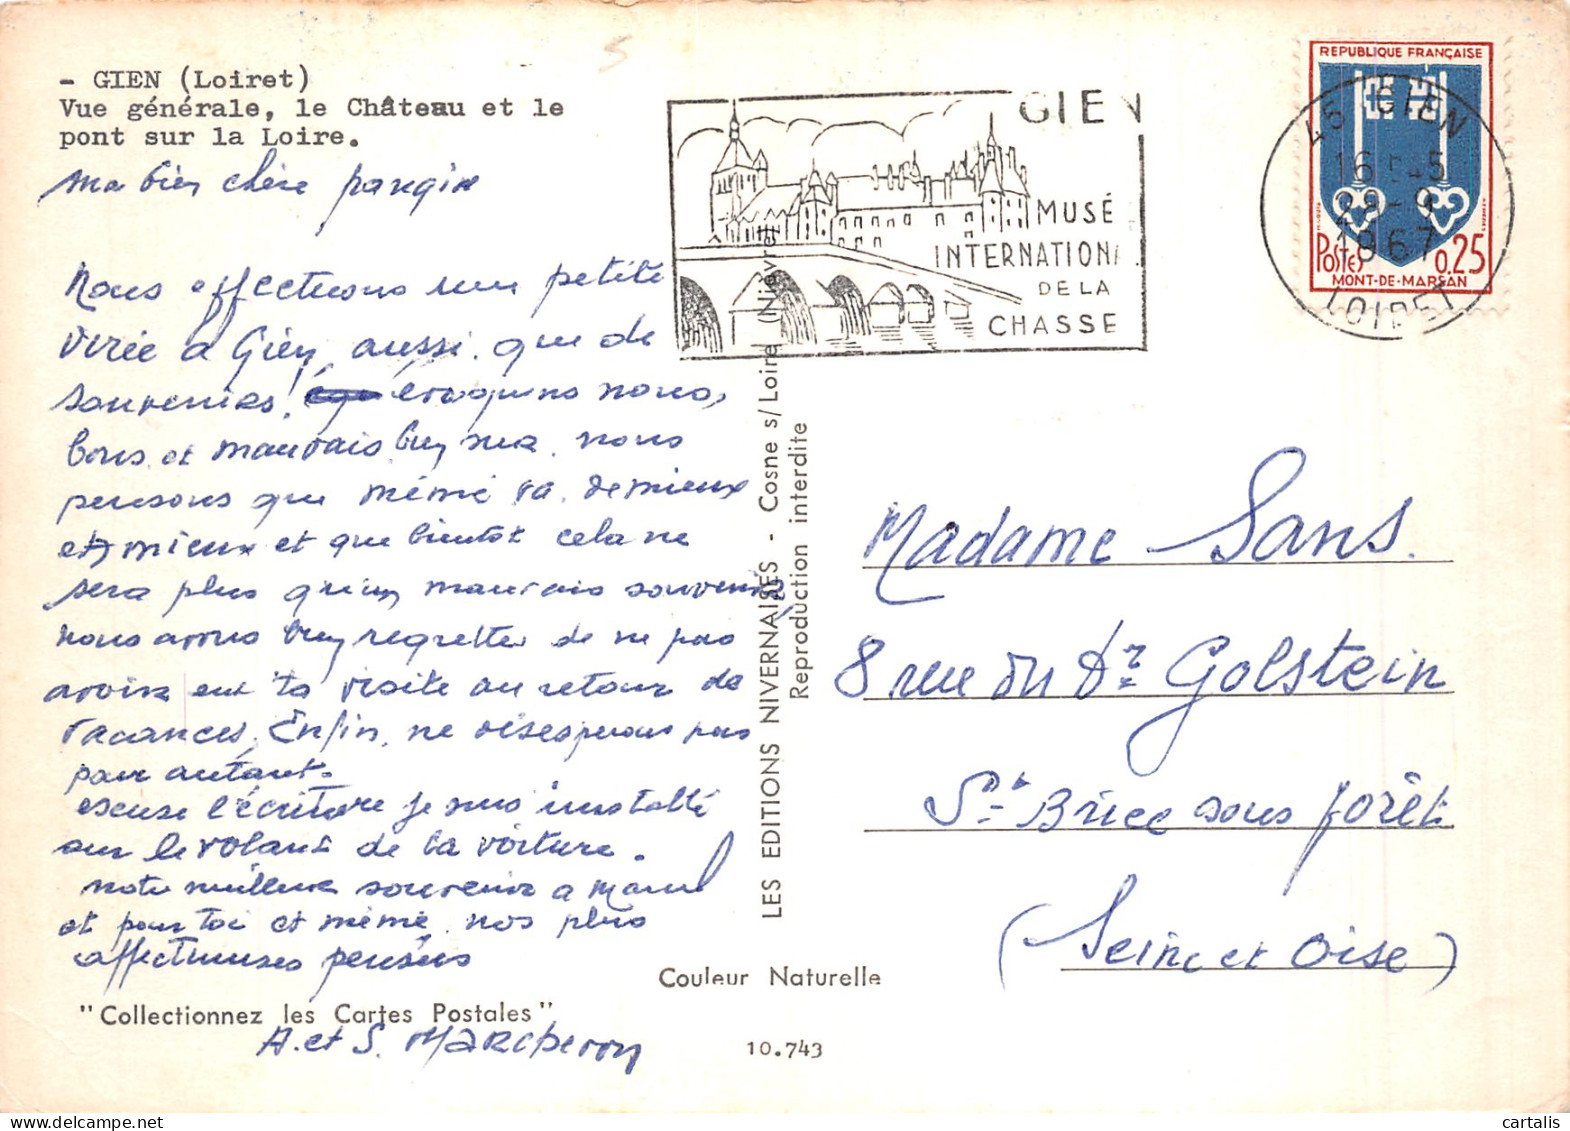 - GIEN (Loiret)
Vue générale, le Château et le
pont sur la Loire.
Ma bien chère
Nous effectuons une petite
virée a Gien, aussi que de
souvenirs! évoquons nous,
bons et mauvais bien sur. nous
pensons que mémé va de mieux
et mieux et que bientot cela ne
sera plus qu'un mauvais souvenir
nous avons bien regretter de ne pas
avoir eut ta visite au retour de
vacances. Enfin, ne désésperons pas
pour autant.
escuse l'écriture je suis installé
sur le volant de la voiture.
notre meilleur souvenir a Marcel
et pour toi et mémé, nos plus
affectueuses pensées
A. et S. Marcheron
"Collectionnez les Cartes Postales"
LES EDITIONS NIVERNAISES - Cosne s/Loire (Nièvre)
Reproduction interdite
Couleur Naturelle
10.743
GIEN
MUSÉ
INTERNATION
DE LA
CHASSE
REPUBLIQUE FRANÇAISE
Postes 0,25
MONT-DE-MARSAN
45 GIEN
16 45
28-9
1967
LOIRET
Madame Sans.
8 rue du Dr Golstein
St Brice sous forêt
(Seine et Oise)
cartalis